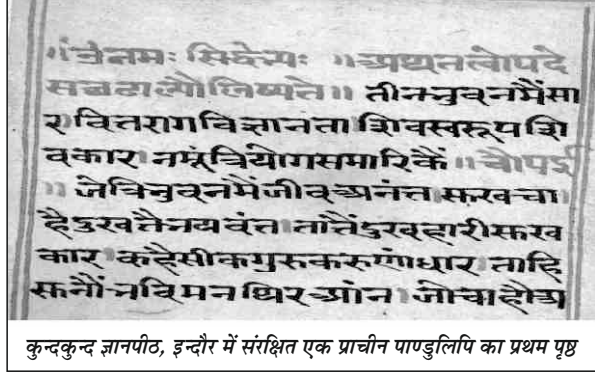 ॥ॐनमः सिद्धेभ्यः ॥ अथ तत्वोपदे
सछहढाल्यौलिष्यते॥ तीनभुवनमैंसा
रवितरागविज्ञानता।शिवस्वरूपशि
वकार।नमूंत्रियोगसमारिकैं॥चौपई
॥जेत्रिभुवनमैंजीवअनंत।सुखचा
हैदुखतैभयवंत।तातैंदुखहारीसुख
कार।कहैसीकगुरुकरुणाधार।ताहि
सुनौंभविमनथिरआंन।जोचाहौअ
कुन्दकुन्द ज्ञानपीठ, इन्दौर में संरक्षित एक प्राचीन पाण्डुलिपि का प्रथम पृष्ठ